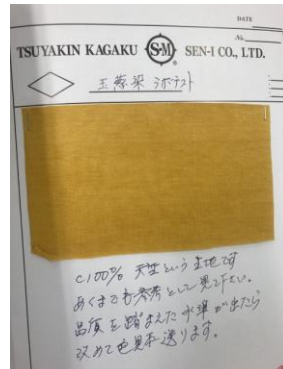 DATE
No.
TSUYAKIN KAGAKU S·M SEN-I CO., LTD.
玉葱染 ラボテスト
C100% 天竺という生地です
あくまでも参考として見て下さい。
品質を踏まえた水準が出たら
改めて色見本送ります。